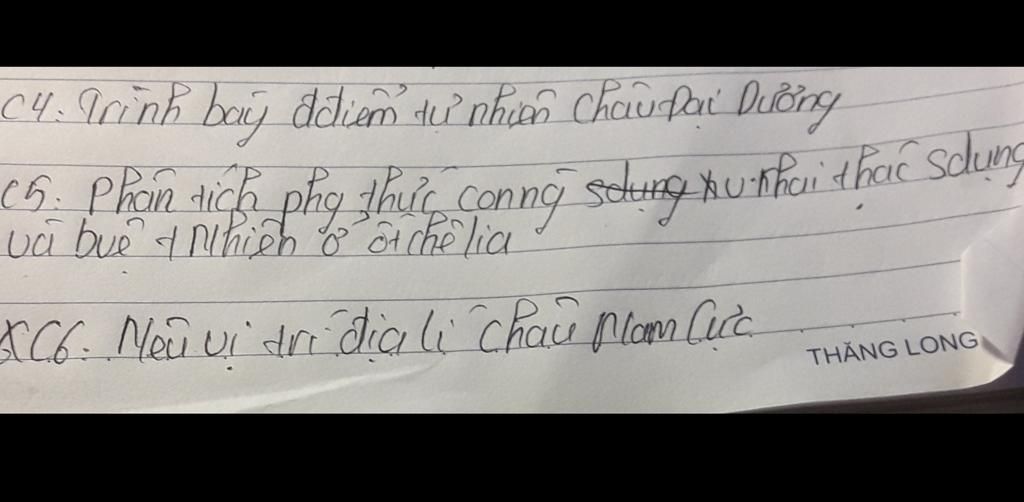 C4: Trình bày đđiểm tự nhiên Châu Đại Dương
C5: Phân tích phg thức conng khai thác sdụng
và bvệ tnhiên ở ôtchâylia
C6: Nêu vị trí địa lí Châu Nam Cực
THĂNG LONG